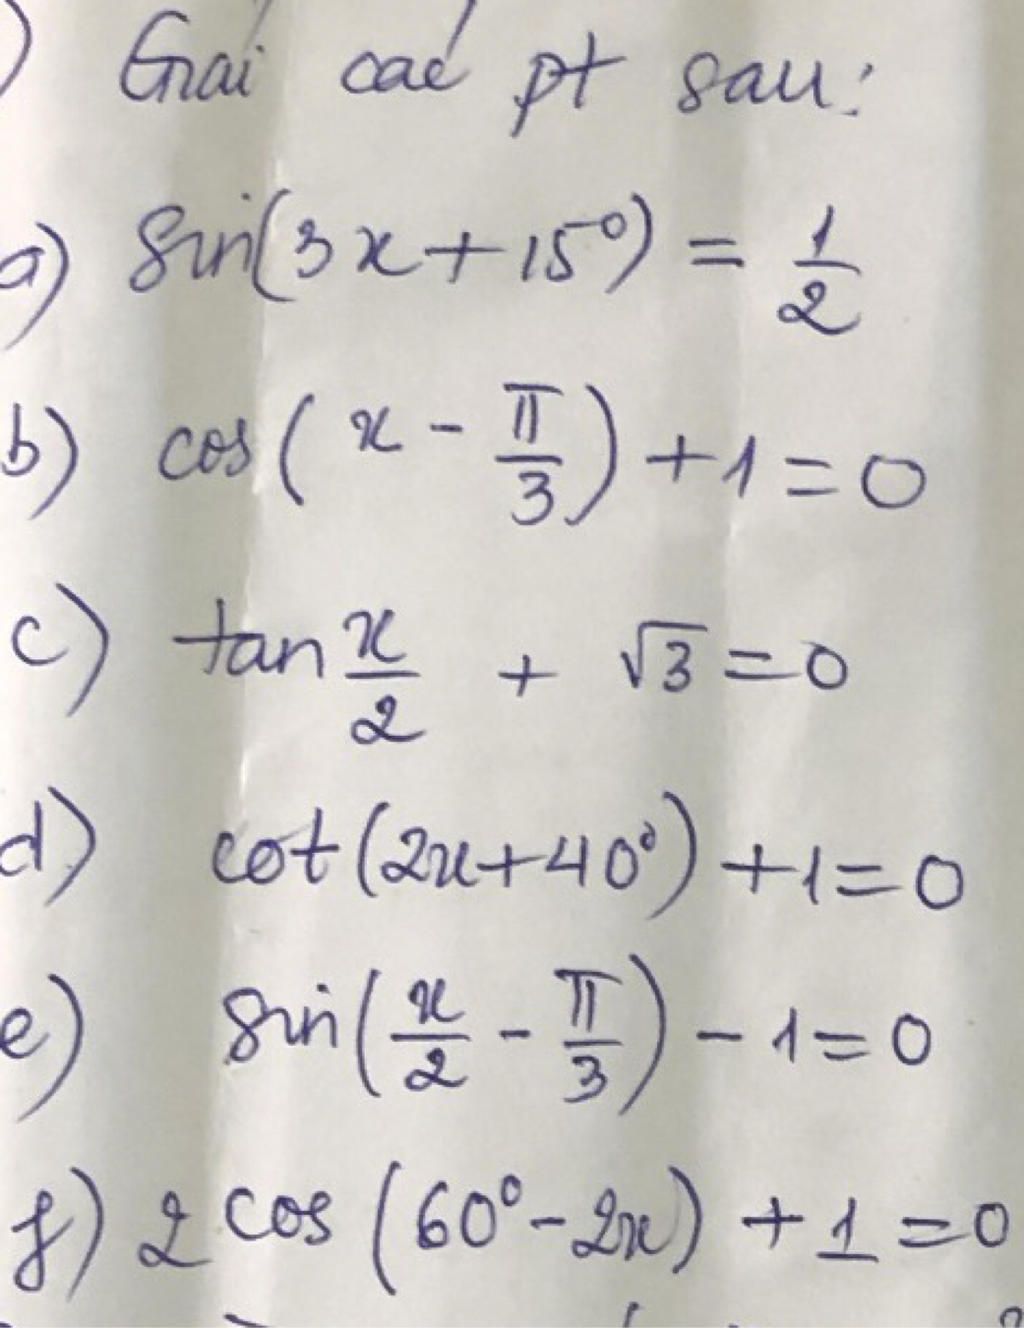 ) Giải các pt sau:
a) sin(3x+15°) = 1/2
b) cos(x - π/3) + 1 = 0
c) tan x/2 + √3 = 0
d) cot(2x+40°) + 1 = 0
e) sin(x/2 - π/3) - 1 = 0
f) 2 cos(60° - 2x) + 1 = 0